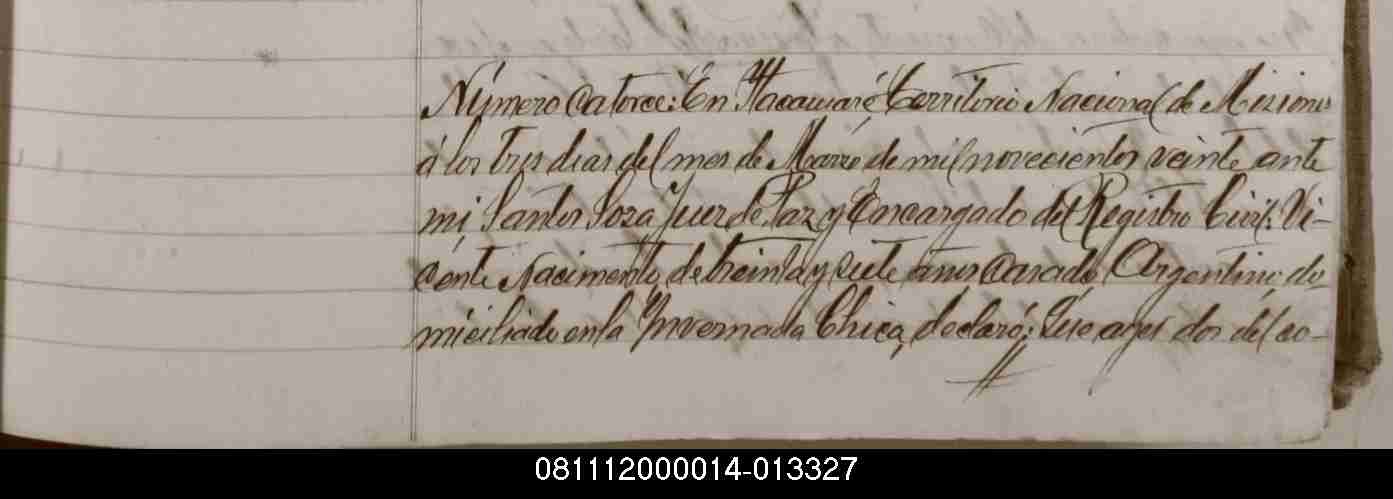 Número catorce: En Itacaruaré, Territorio Nacional de Misiones
á los tres dias del mes de Marzo de mil novecientos veinte ante
mi Santos Soza Juez de Paz y Encargado del Registro Civil: Vi-
cente Nacimento, de treinta y siete años casado, Argentino, do-
miciliado en la Invernada Chica, declaró: Que ayer dos del co-
081112000014-013327